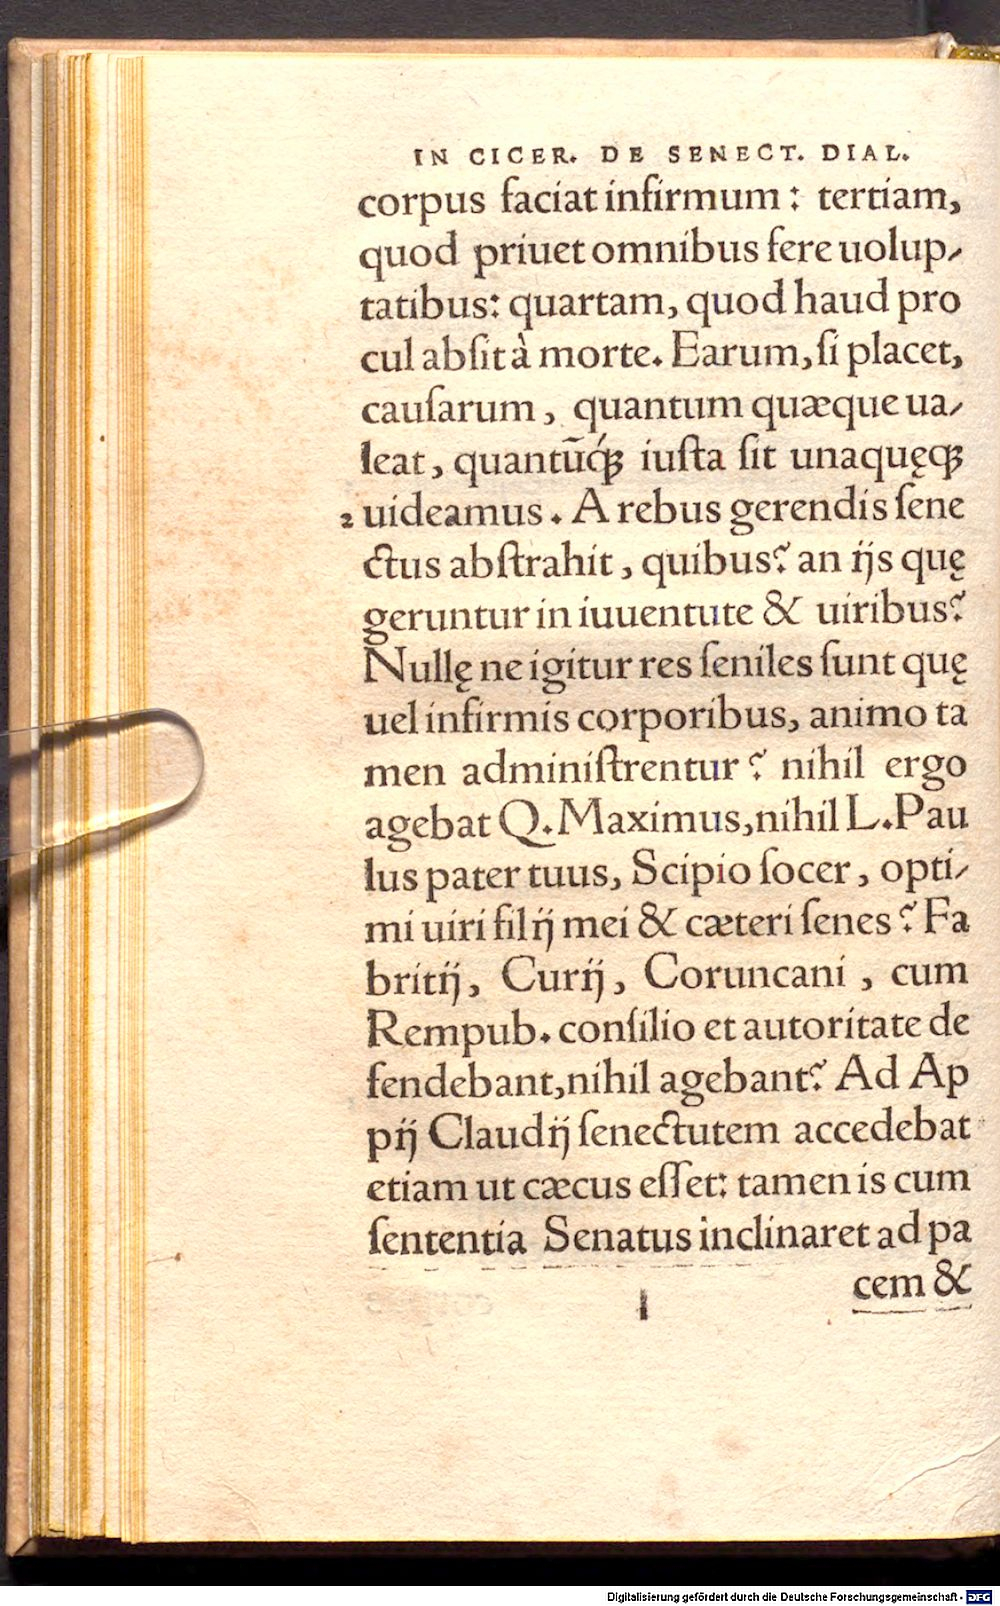 IN CICER. DE SENECT. DIAL.
corpus faciat infirmum: tertiam,
quod priuet omnibus fere uolup⸗
tatibus: quartam, quod haud pro
cul absit à morte. Earum, si placet,
causarum, quantum quæque ua⸗
leat, quantũq́ꝫ iusta sit unaquęqꝫ
2 uideamus. A rebus gerendis sene
ctus abstrahit, quibus? an ijs quę
geruntur in iuuentute & uiribus?
Nullę ne igitur res seniles sunt quę
uel infirmis corporibus, animo ta
men administrentur? nihil ergo
agebat Q. Maximus, nihil L. Pau
lus pater tuus, Scipio socer, opti⸗
mi uiri filij mei & cæteri senes? Fa
britij, Curij, Coruncani, cum
Rempub. consilio et autoritate de
fendebant, nihil agebant? Ad Ap
pij Claudij senectutem accedebat
etiam ut cæcus esset: tamen is cum
sententia Senatus inclinaret ad pa
cem &
Digitalisierung gefördert durch die Deutsche Forschungsgemeinschaft - DFG